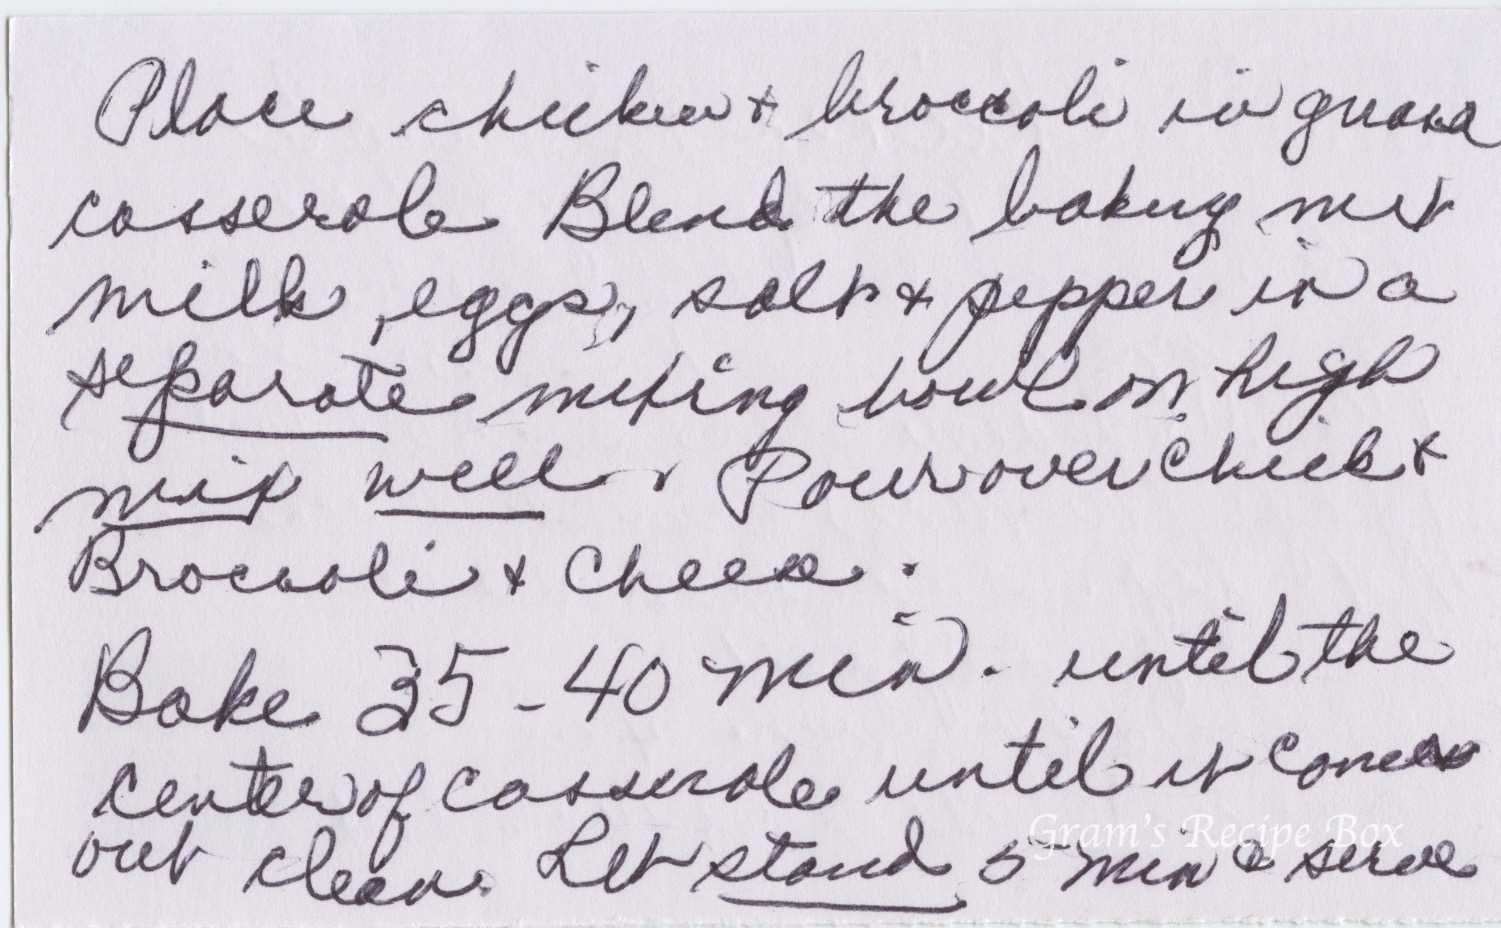 Place chicken & broccoli in greased
casserole Blend the baking mix
milk, eggs, salt & pepper in a
separate mixing bowl on high
mix well. Pour over Chick &
Broccoli & Cheese.
Bake 35-40 min. until the
center of casserole until it comes
out clean. Let stand 5 min & serve
Gram's Recipe Box